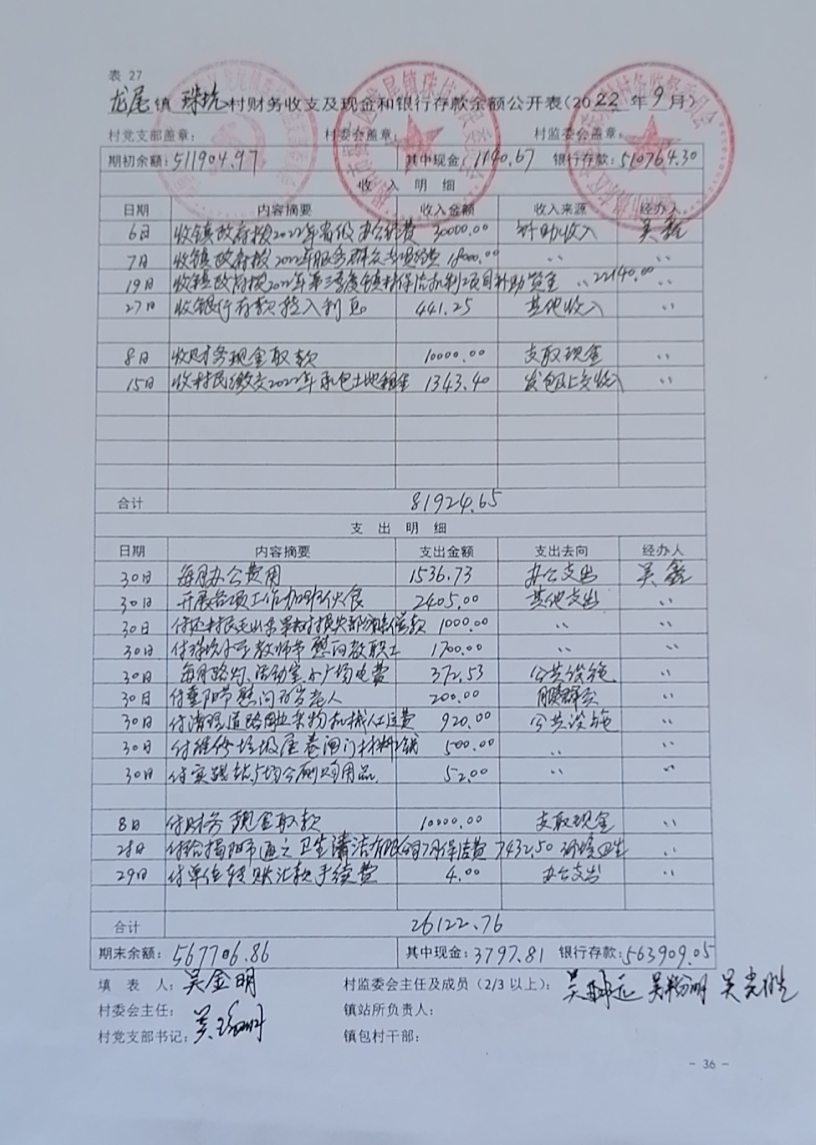 表 27
龙尾镇 珠坑村财务收支及现金和银行存款余额公开表(2022年9月)
村党支部盖章: 村委会盖章: 村监委会盖章:
期初余额:511904.97 其中现金:1140.67 银行存款:510764.30
收入明细
日期 内容摘要 收入金额 收入来源 经办人
6日 收镇政府拨2022年省级办公经费 30000.00 补助收入 吴鑫
7日 收镇政府拨2022年服务群众专项经费 18000.00 〃 〃
19日 收镇政府拨2022年第三季度镇村保洁机制项目补助资金 〃 22140.00 〃
27日 收银行存款转入利息 441.25 其他收入 〃
8日 收财务现金取款 10000.00 支取现金 〃
15日 收村民缴交2022年承包土地租金 1343.40 发包及上交收入 〃
合计 81924.65
支出明细
日期 内容摘要 支出金额 支出去向 经办人
30日 每月办公费用 1536.73 办公支出 吴鑫
30日 开展各项工作加班伙食 2405.00 其他支出 〃
30日 付还村民 1000.00 〃 〃
30日 付珠坑小学教师节慰问教职工 1700.00 〃 〃
30日 每月路灯、活动室、小广场电费 372.53 公共设施 〃
30日 付重阳节慰问 老人 200.00 服务群众 〃
30日 付清理道路 杂物机械人工费 920.00 公共设施 〃
30日 付维修垃圾屋卷闸门材料钱 500.00 〃 〃
30日 付实践站 购用品. 52.00 〃 〃
8日 付财务现金取款 10000.00 支取现金 〃
28日 付给揭阳市通之卫生清洁有限公司7月保洁费 7432.50 环境卫生 〃
29日 付单位转账汇款手续费 4.00 办公支出 〃
合计 26122.76
期末余额:567706.86 其中现金:3797.81 银行存款:563909.05
填 表 人:吴金明 村监委会主任及成员(2/3 以上):吴 吴 吴光胜
村委会主任: 镇站所负责人:
村党支部书记:吴 镇包村干部:
- 36 -